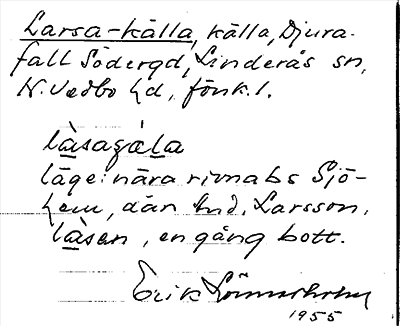 Larsa-källa, källa, Djura-
fall Södergd, Linderås sn,
N. Vedbo hd, Jönk. l.
làsagə́la
läge: nära rivnabs Sjö-
hem, där And. Larsson,
làsen, en gång bott.
Erik Lönnerholm
1955